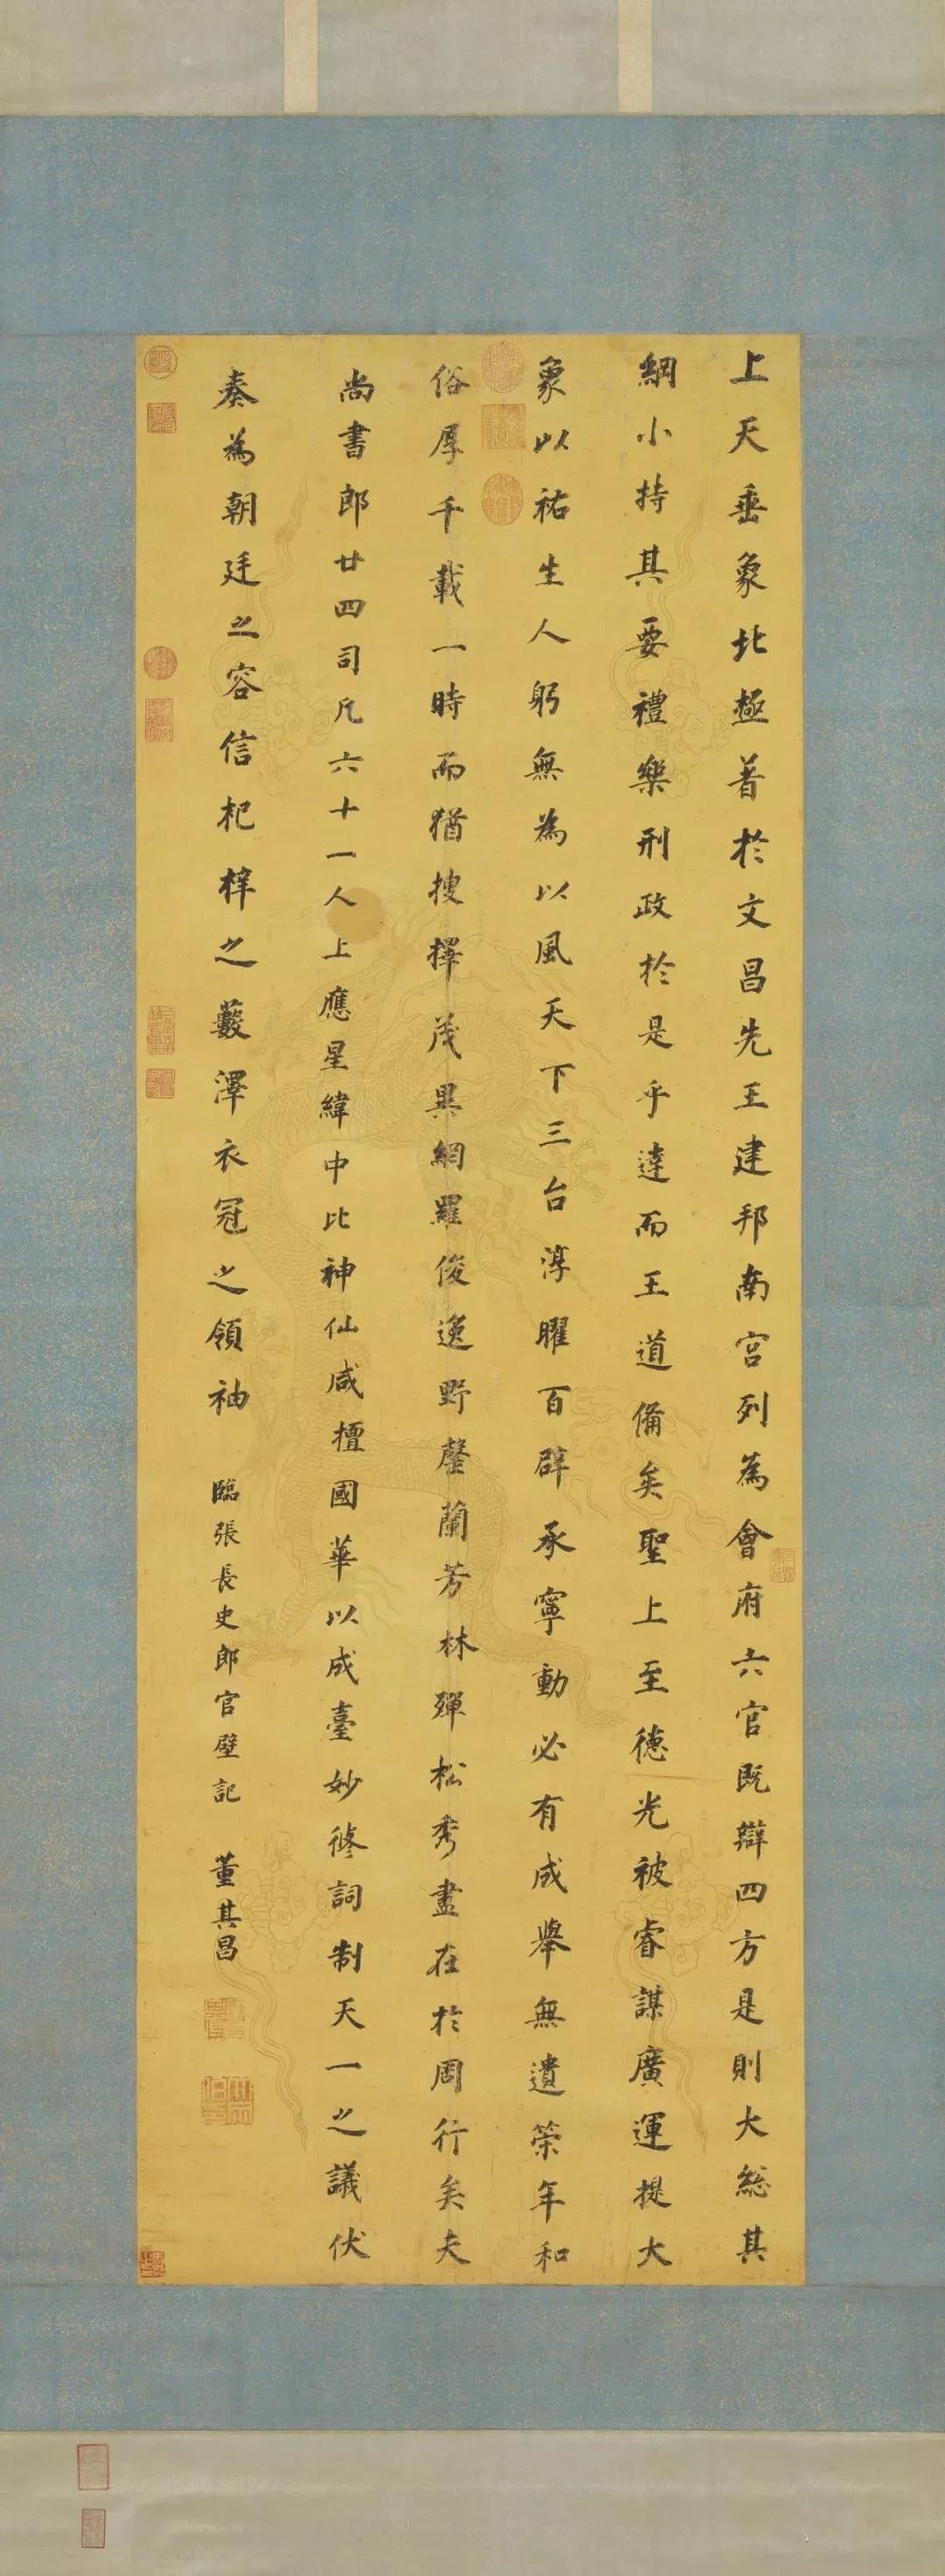 上天垂象北極著於文昌先王建邦南宮列為會府六官既辯四方是則大總其
綱小持其要禮樂刑政於是乎達而王道備矣聖上至德光被睿謀廣運提大
象以祐生人躬無為以風天下三台淳曜百辟承寧動必有成舉無遺策年和
俗厚千載一時而猶搜擇茂異網羅俊逸野罄蘭芳林殫松秀盡在於周行矣夫
尚書郎廿四司凡六十一人上應星緯中比神仙咸擅國華以成臺妙修詞制天一之議伏
奏為朝廷之容信杞梓之藪澤衣冠之領袖
臨張長史郎官壁記
董其昌